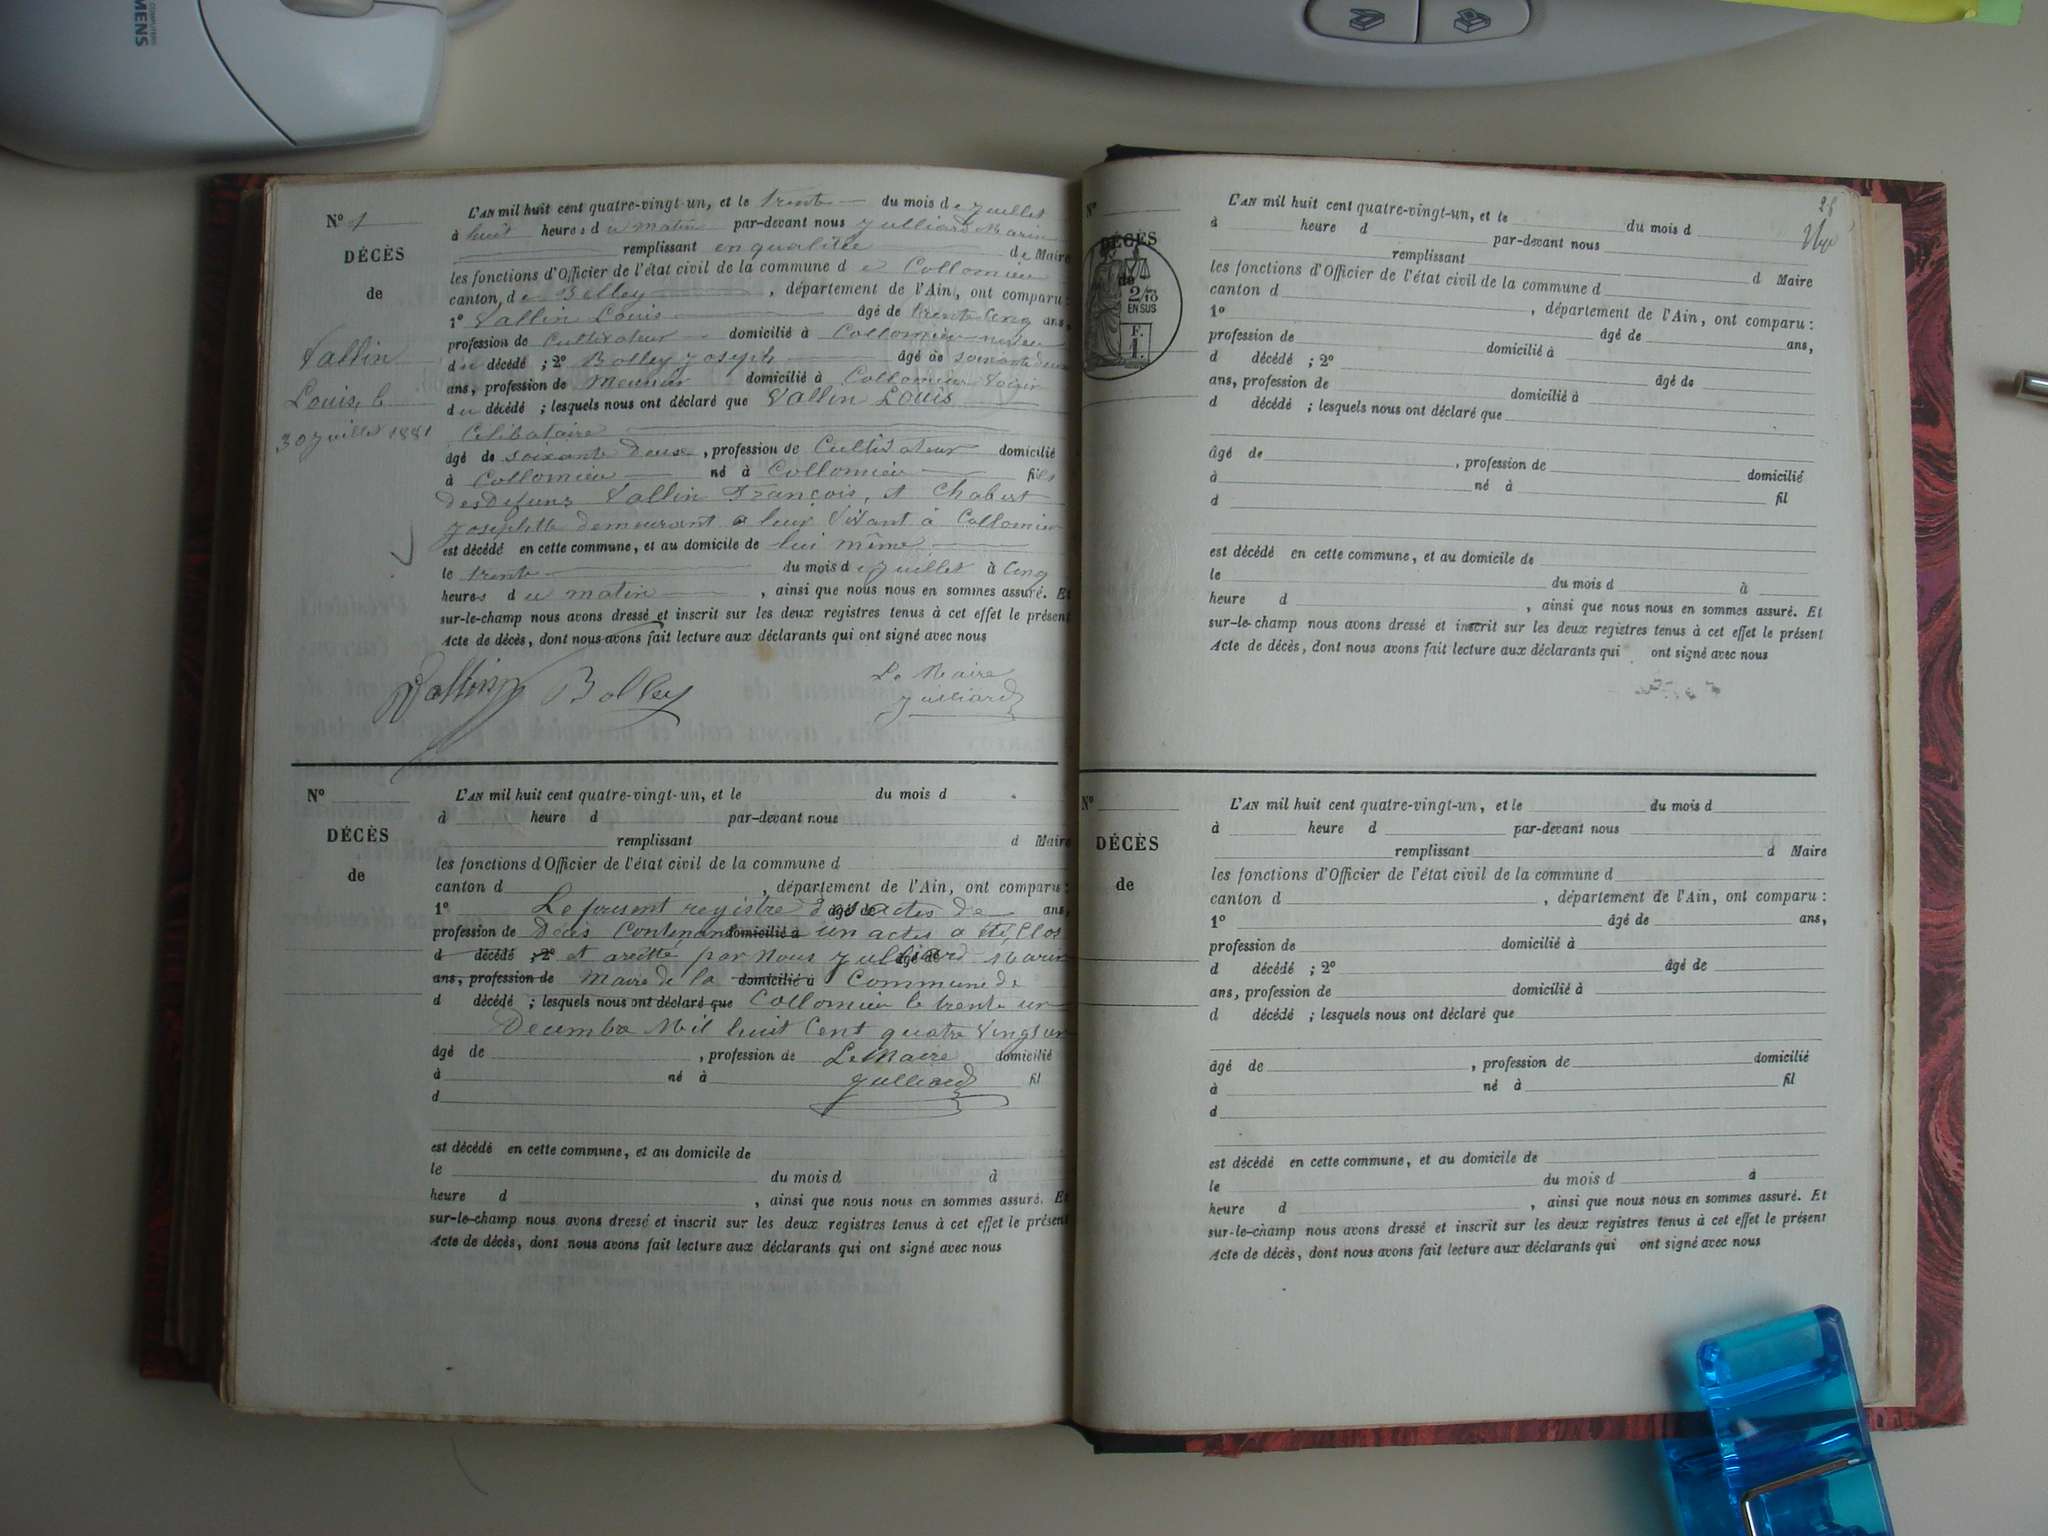 SIEMENS
N° 1
DÉCÈS
de
Vallin
Louis, le
30 Juillet 1881
L'AN mil huit cent quatre-vingt-un, et le trente du mois de Juillet
à huit heures du matin par-devant nous Julliard Marin
remplissant en qualitée de Maire
les fonctions d'Officier de l'état civil de la commune de Collomieu
canton de Belley, département de l'Ain, ont comparu :
1° Vallin Louis âgé de trente Cinq ans,
profession de Cultivateur domicilié à Collomieu neveu
du décédé ; 2° Bolley Joseph âgé de soixante deux
ans, profession de Meunier domicilié à Collomieu Voisin
du décédé ; lesquels nous ont déclaré que Vallin Louis
Celibataire
âgé de soixante Deux, profession de Cultivateur domicilié
à Collomieu né à Collomieu fils
des Defunz Vallin François, et Chabert
Josephtte demeurant a leur Vivant à Collomieu
est décédé en cette commune, et au domicile de lui même
le trente du mois de Juillet à Cinq
heures du matin, ainsi que nous nous en sommes assuré. Et
sur-le-champ nous avons dressé et inscrit sur les deux registres tenus à cet effet le présent
Acte de décès, dont nous avons fait lecture aux déclarants qui ont signé avec nous
Vallin Bolley Le Maire
Julliard
N°
DÉCÈS
de
L'AN mil huit cent quatre-vingt-un, et le du mois d
à heure d par-devant nous
remplissant d Maire
les fonctions d'Officier de l'état civil de la commune d
canton d , département de l'Ain, ont comparu :
1° Le present registre des actes de âgé de ans,
profession de Décès Contenant domicilié à un actes a été Clos
d décédé ; 2° et areitté par Nous Julliard âgé de Marin
ans, profession de Maire de la domicilié à Commune de
d décédé ; lesquels nous ont déclaré que Collomieu le trente un
Decembre Mil huit Cent quatre Vingt un
âgé de , profession de Le Maire domicilié
à né à Julliard fil
d
est décédé en cette commune, et au domicile de
le du mois d à
heure d , ainsi que nous nous en sommes assuré. Et
sur-le-champ nous avons dressé et inscrit sur les deux registres tenus à cet effet le présent
Acte de décès, dont nous avons fait lecture aux déclarants qui ont signé avec nous
28
N°
DÉCÈS
de
2/10
EN SUS
F.
1.
L'AN mil huit cent quatre-vingt-un, et le du mois d
à heure d par-devant nous
remplissant d Maire
les fonctions d'Officier de l'état civil de la commune d
canton d , département de l'Ain, ont comparu :
1° âgé de ans,
profession de domicilié à
d décédé ; 2° âgé de
ans, profession de domicilié à
d décédé ; lesquels nous ont déclaré que
âgé de , profession de domicilié
à né à fil
d
est décédé en cette commune, et au domicile de
le du mois d à
heure d , ainsi que nous nous en sommes assuré. Et
sur-le-champ nous avons dressé et inscrit sur les deux registres tenus à cet effet le présent
Acte de décès, dont nous avons fait lecture aux déclarants qui ont signé avec nous
N°
DÉCÈS
de
L'AN mil huit cent quatre-vingt-un, et le du mois d
à heure d par-devant nous
remplissant d Maire
les fonctions d'Officier de l'état civil de la commune d
canton d , département de l'Ain, ont comparu :
1° âgé de ans,
profession de domicilié à
d décédé ; 2° âgé de
ans, profession de domicilié à
d décédé ; lesquels nous ont déclaré que
âgé de , profession de domicilié
à né à fil
d
est décédé en cette commune, et au domicile de
le du mois d à
heure d , ainsi que nous nous en sommes assuré. Et
sur-le-champ nous avons dressé et inscrit sur les deux registres tenus à cet effet le présent
Acte de décès, dont nous avons fait lecture aux déclarants qui ont signé avec nous